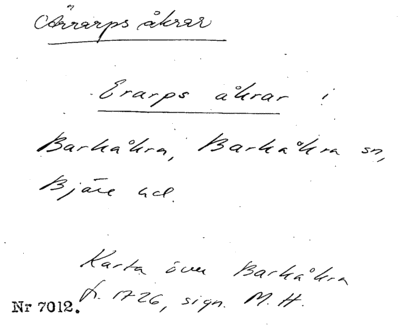 Ärrarps åkrar
Erarps åkrar i
Barkåkra, Barkåkra sn,
Bjäre hd.
Karta över Barkåkra
fr. 1726, sign. M. H.
Nr 7012.